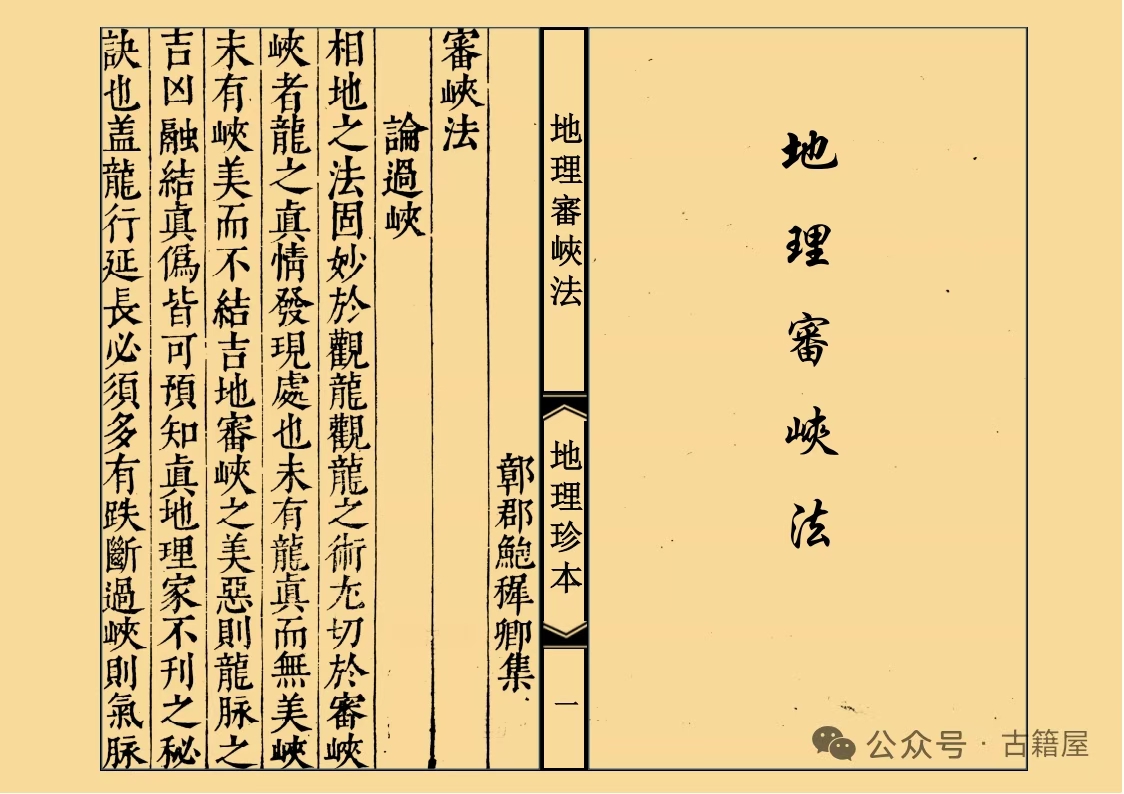 地理審峽法
地理審峽法
地理珍本
一
鄣郡鮑稺卿集
審峽法
論過峽
相地之法固妙於觀龍觀龍之術尤切於審峽
峽者龍之眞情發現處也未有龍眞而無美峽
未有峽美而不結吉地審峽之美惡則龍脉之
吉凶融結眞僞皆可預知眞地理家不刊之秘
訣也盖龍行延長必須多有跌斷過峽則氣脉
公众号·古籍屋